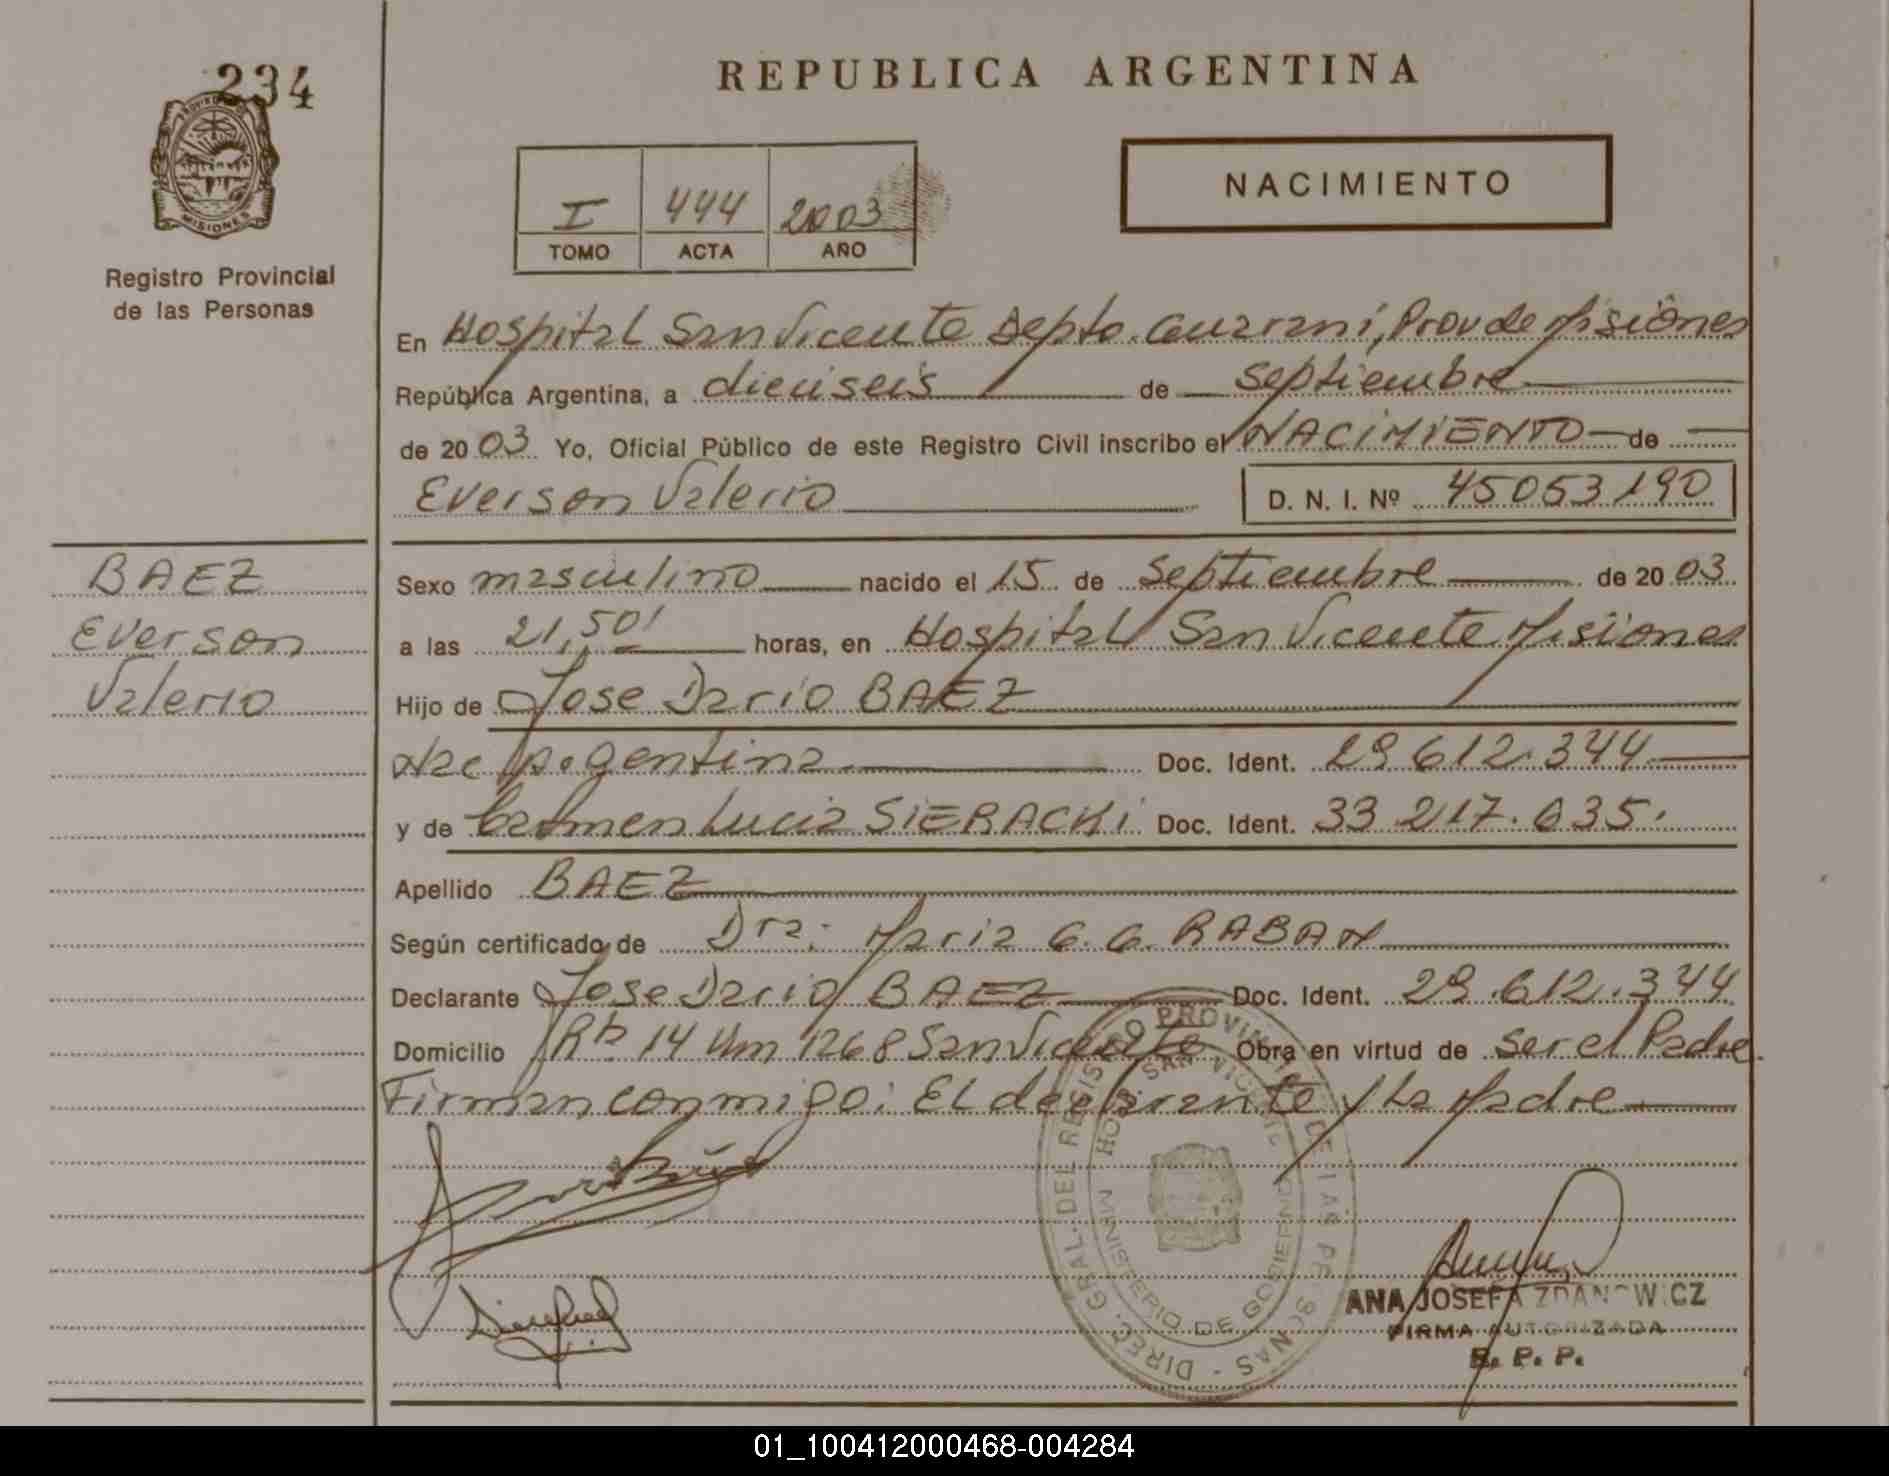 234
REPUBLICA ARGENTINA
NACIMIENTO
I 444 2003
TOMO ACTA AÑO
PROVINCIA
MISIONES
Registro Provincial
de las Personas
En Hospital San Vicente Depto. Guarani, Prov de Misiones
República Argentina, a dieciseis de septiembre
de 2003 Yo, Oficial Público de este Registro Civil inscribo el NACIMIENTO de
Everson Valerio D. N. I. Nº 45053190
BAEZ
Everson
Valerio
Sexo masculino nacido el 15 de Septiembre de 2003
a las 21,50' horas, en Hospital San Vicente Misiones
Hijo de Jose Dario BAEZ
Nac Argentina Doc. Ident. 29 612.344
y de Carmen Lucia SIERACKI Doc. Ident. 33 217.035.
Apellido BAEZ
Según certificado de Dra: Maria G. G. RABAN
Declarante Jose Dario BAEZ Doc. Ident. 29.612.344
Domicilio Rta 14 Km 1268 San Vicente Obra en virtud de ser el Padre.
Firman conmigo: El declarante y la Madre
DIREC. GRAL. DEL REGISTRO PROVINCIAL DE LAS PERSONAS
MINISTERIO DE GOBIERNO
ANA JOSEFA ZDANOWICZ
FIRMA AUTORIZADA
R. P. P.
01_100412000468-004284